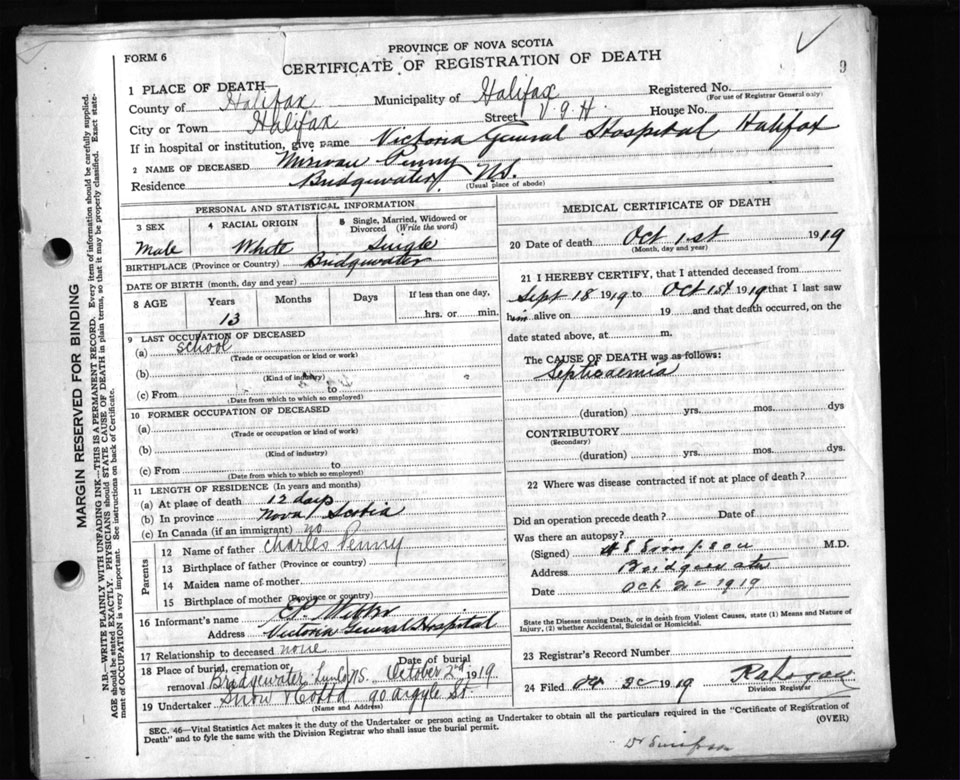 FORM 6
PROVINCE OF NOVA SCOTIA
CERTIFICATE OF REGISTRATION OF DEATH
9
1 PLACE OF DEATH—
County of Halifax Municipality of Halifax Registered No.
(For use of Registrar General only)
City or Town Halifax Street V G H House No.
If in hospital or institution, give name Victoria General Hospital Halifax
2 NAME OF DECEASED Penny
Residence Bridgewater N.S.
(Usual place of abode)
PERSONAL AND STATISTICAL INFORMATION
3 SEX Male
4 RACIAL ORIGIN White
5 Single, Married, Widowed or Divorced (Write the word) Single
BIRTHPLACE (Province or Country) Bridgewater
DATE OF BIRTH (month, day and year)
8 AGE Years 13 Months Days If less than one day, hrs. or min.
9 LAST OCCUPATION OF DECEASED
(a) School
(Trade or occupation or kind or work)
(b)
(Kind of industry)
(c) From to
(Date from which to so employed)
10 FORMER OCCUPATION OF DECEASED
(a)
(Trade or occupation or kind of work)
(b)
(Kind of industry)
(c) From to
(Date from which to so employed)
11 LENGTH OF RESIDENCE (In years and months)
(a) At place of death 12 days
(b) In province Nova Scotia
(c) In Canada (if an immigrant) no
Parents
12 Name of father Charles Penny
13 Birthplace of father (Province or country)
14 Maiden name of mother
15 Birthplace of mother (Province or country)
16 Informant's name
Address Victoria General Hospital
17 Relationship to deceased none
18 Place of burial, cremation or removal Bridgewater N.S. Date of burial October 2nd 1919
19 Undertaker Snow 90 Argyle St
(Name and Address)
MEDICAL CERTIFICATE OF DEATH
20 Date of death Oct 1st 1919
(Month, day and year)
21 I HEREBY CERTIFY, that I attended deceased from
Sept 18 1919 to Oct 1st 1919 that I last saw
him alive on 19 and that death occurred, on the
date stated above, at m.
The CAUSE OF DEATH was as follows:
Septicaemia
(duration) yrs. mos. dys
CONTRIBUTORY
(Secondary)
(duration) yrs. mos. dys.
22 Where was disease contracted if not at place of death?
Did an operation precede death? Date of
Was there an autopsy?
(Signed) H S Simpson M.D.
Address Bridgewater
Date Oct 2 1919
State the Disease causing Death, or in death from Violent Causes, state (1) Means and Nature of
Injury, (2) whether Accidental, Suicidal or Homicidal.
23 Registrar's Record Number
24 Filed 1919
Division Registrar
SEC. 46—Vital Statistics Act makes it the duty of the Undertaker or person acting as Undertaker to obtain all the particulars required in the "Certificate of Registration of
Death" and to fyle the same with the Division Registrar who shall issue the burial permit.
(OVER)
Dr Simpson
MARGIN RESERVED FOR BINDING
N.B.—WRITE PLAINLY WITH UNFADING INK—THIS IS A PERMANENT RECORD. Every item of information should be carefully supplied.
AGE should be stated EXACTLY. PHYSICIANS should STATE CAUSE OF DEATH in plain terms, so that it may be properly classified. Exact statement of OCCUPATION is very important. See instructions on back of Certificate.